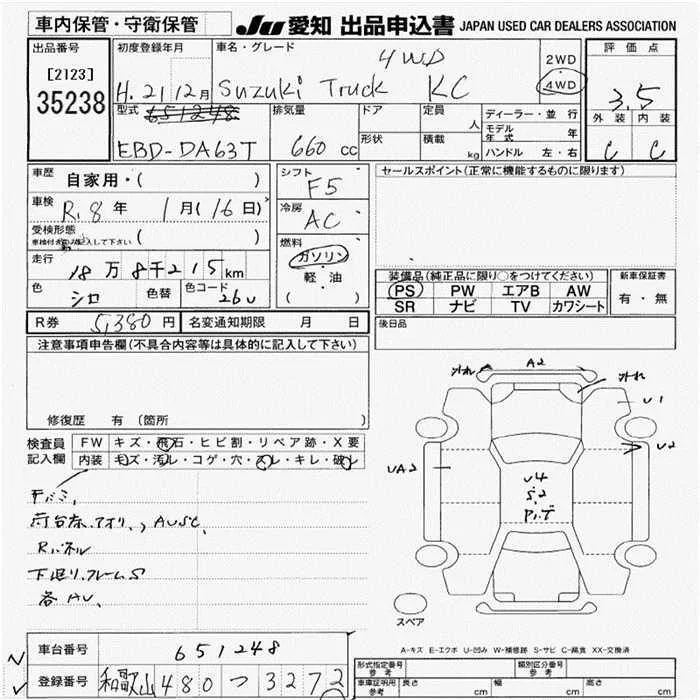 車内保管・守衛保管
JU 愛知 出品申込書 JAPAN USED CAR DEALERS ASSOCIATION
出品番号
[2123]
35238
初度登録年月
H. 21 12月
車名・グレード
4WD
Suzuki Truck KC
2WD
4WD
評価点
3.5
外装 内装
C C
型式
651248
EBD-DA63T
排気量
660 cc
ドア
形状
定員
人
積載
kg
ディーラー・並行
モデル年式 年
ハンドル 左・右
車歴
自家用・( )
車検
R. 8 年 1月(16日)
受検形態
( )
走行
18万8千215km
色
シロ
色替
色コード
26U
シフト
F5
冷房
AC
燃料
ガソリン
軽・油
( )
セールスポイント(正常に機能するものに限ります)
装備品(純正品に限り○をつけてください)
PS PW エアB AW
SR ナビ TV カワシート
新車保証書
有・無
R券 5,380円
名変通知期限 月 日
後日品
注意事項申告欄(不具合内容等は具体的に記入して下さい)
修復歴 有 〔箇所 〕
検査員
記入欄
FW キズ・飛石・ヒビ割・リペア跡・X要
内装 キズ・汚レ・コゲ・穴・スレ・キレ・破レ
荷台床.アオリ、AUSC.
Rパネル
下廻り.フレームS
各AU、
A2
外れ
外れ
U1
U2
UA2
U4
S.2
スペア
A-キズ E-エクボ U-凹み W-補修跡 S-サビ C-腐食 XX-交換済
車台番号
651248
登録番号
和歌山 480 つ 3272
形式指定番号
参考
類別区分番号
参考
車庫証明用
参考
長さ cm
幅 cm
高さ cm